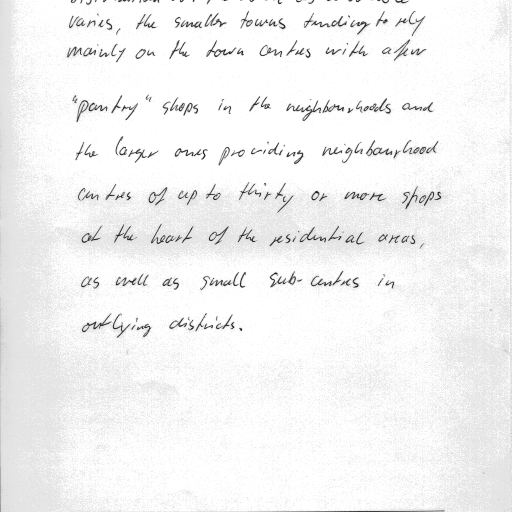 varies, the smaller towns tending to rely
mainly on the town centres with a few
"pantry" shops in the neighbourhoods and
the larger ones providing neighbourhood
centres of up to thirty or more shops
at the heart of the residential areas,
as well as small sub-centres in
outlying districts.